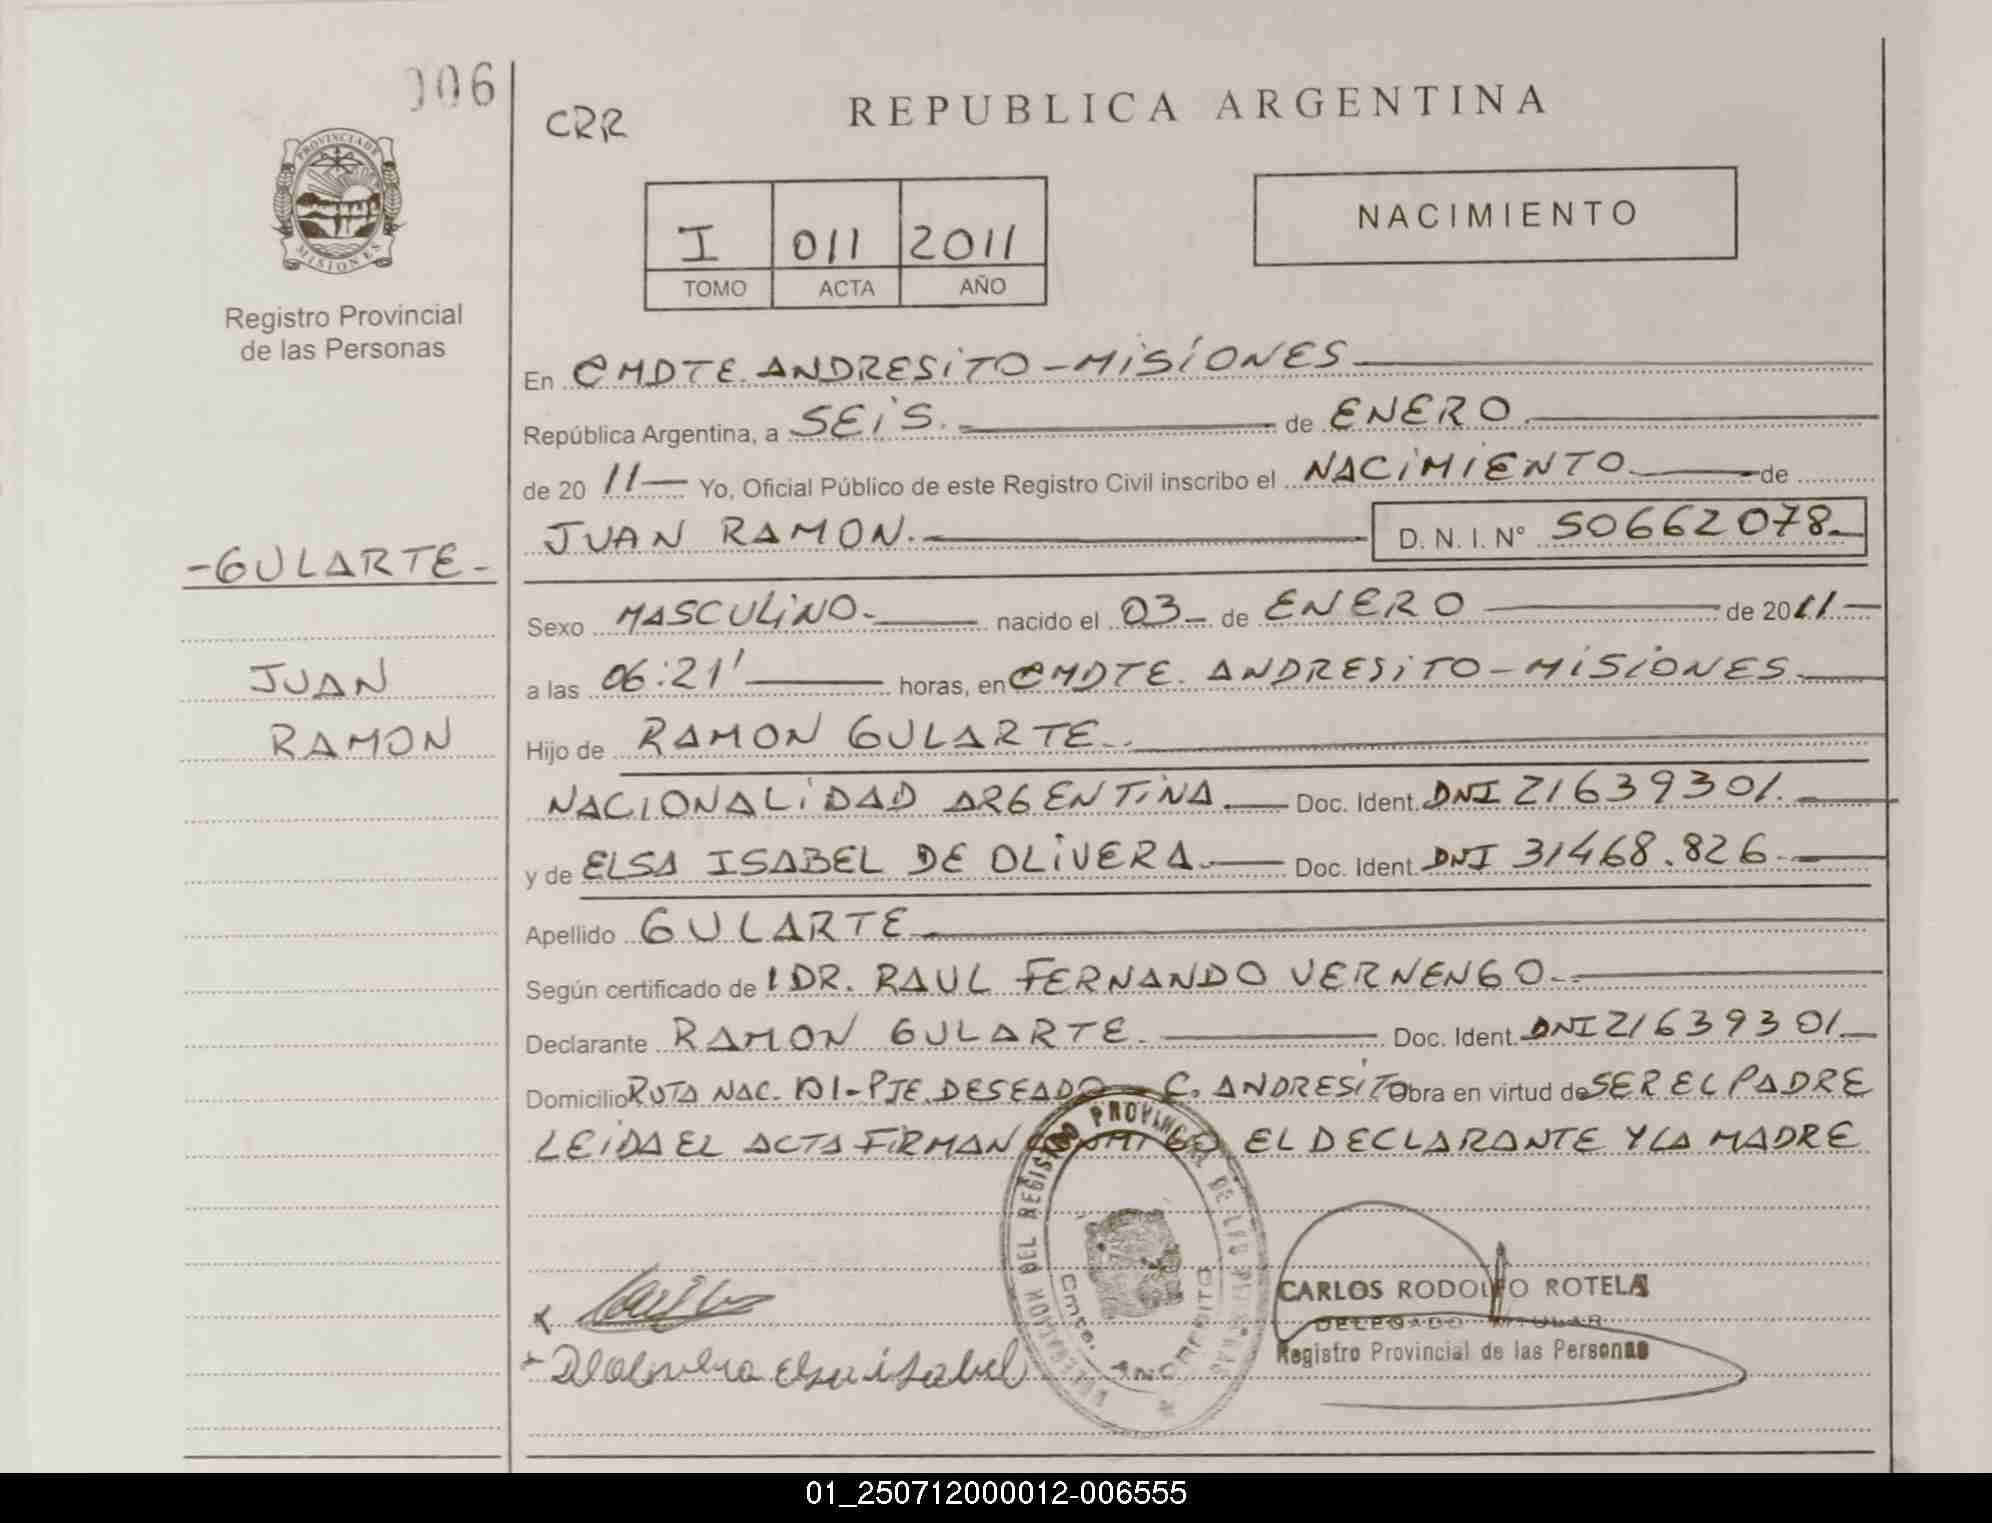 006
PROVINCIA DE
MISIONES
Registro Provincial
de las Personas
-GULARTE-
JUAN
RAMON
CRR
REPUBLICA ARGENTINA
I 011 2011
TOMO ACTA AÑO
NACIMIENTO
En CMDTE. ANDRESITO - MISIONES
República Argentina, a SEIS. de ENERO
de 20 11 Yo, Oficial Público de este Registro Civil inscribo el NACIMIENTO de
JUAN RAMON. D. N. I. N° 50662078
Sexo MASCULINO nacido el 03 de ENERO de 2011
a las 06:21' horas, en CMDTE. ANDRESITO - MISIONES
Hijo de RAMON GULARTE
NACIONALIDAD ARGENTINA Doc. Ident. DNI 21639301.
y de ELSA ISABEL DE OLIVERA Doc. Ident. DNI 31468.826
Apellido GULARTE
Según certificado de DR. RAUL FERNANDO VERNENGO
Declarante RAMON GULARTE. Doc. Ident. DNI 21639301
Domicilio RUTA NAC. 101 - PTE. DESEADO - C. ANDRESITO Obra en virtud de SER EL PADRE
LEIDA EL ACTA FIRMAN CONMIGO EL DECLARANTE Y LA MADRE
DELEGACION DEL REGISTRO PROVINCIAL DE LAS PERSONAS
Cmte. ANDRESITO
CARLOS RODOLFO ROTELA
DELEGADO TITULAR
Registro Provincial de las Personas
De Olivera Elsa isabel
01_250712000012-006555